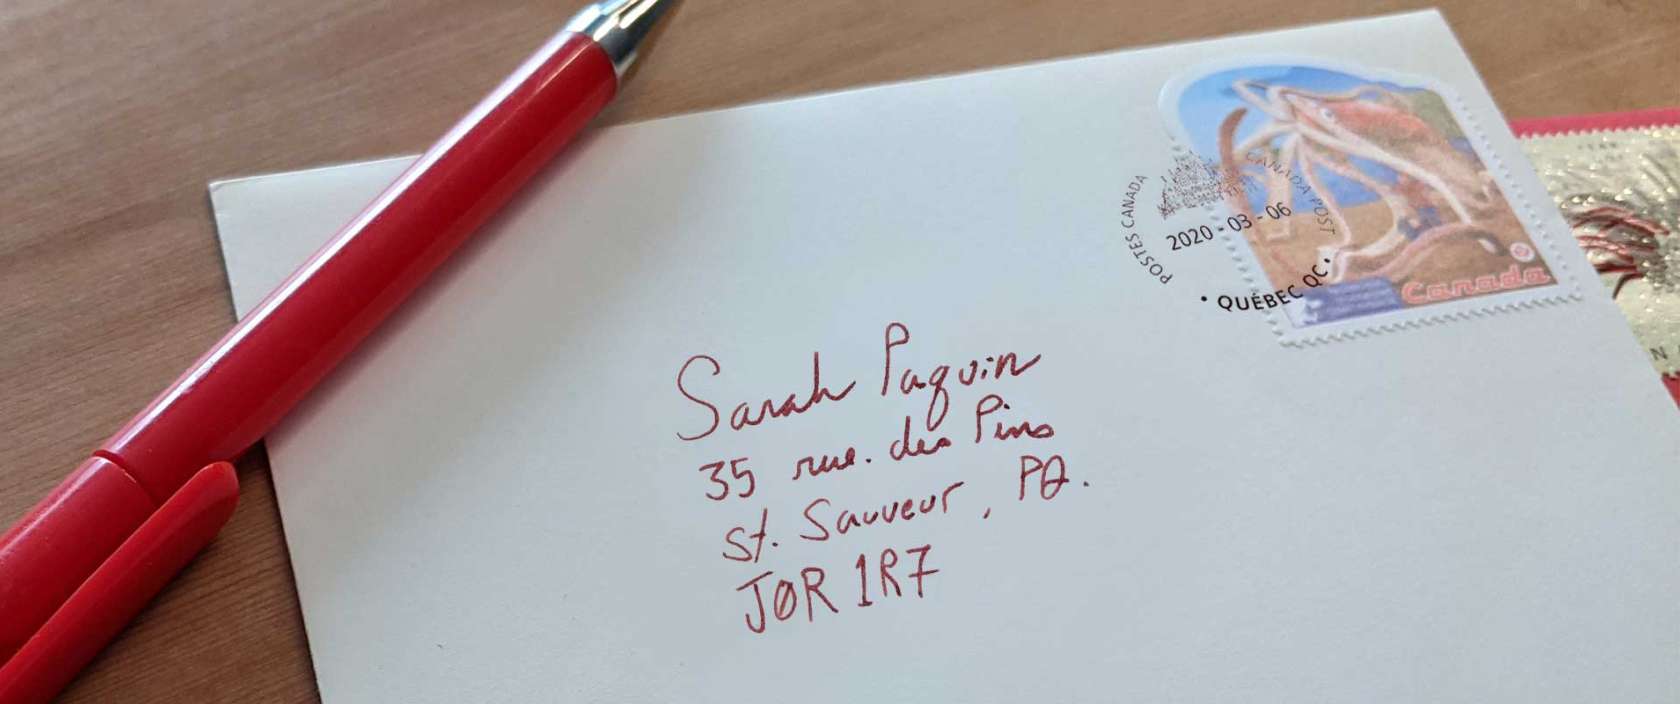 POSTES CANADA
CANADA POST
2020 - 03 - 06
• QUÉBEC QC •
Canada
Sarah Paquin
35 rue. des Pins
St. Sauveur, PQ.
JØR 1R7